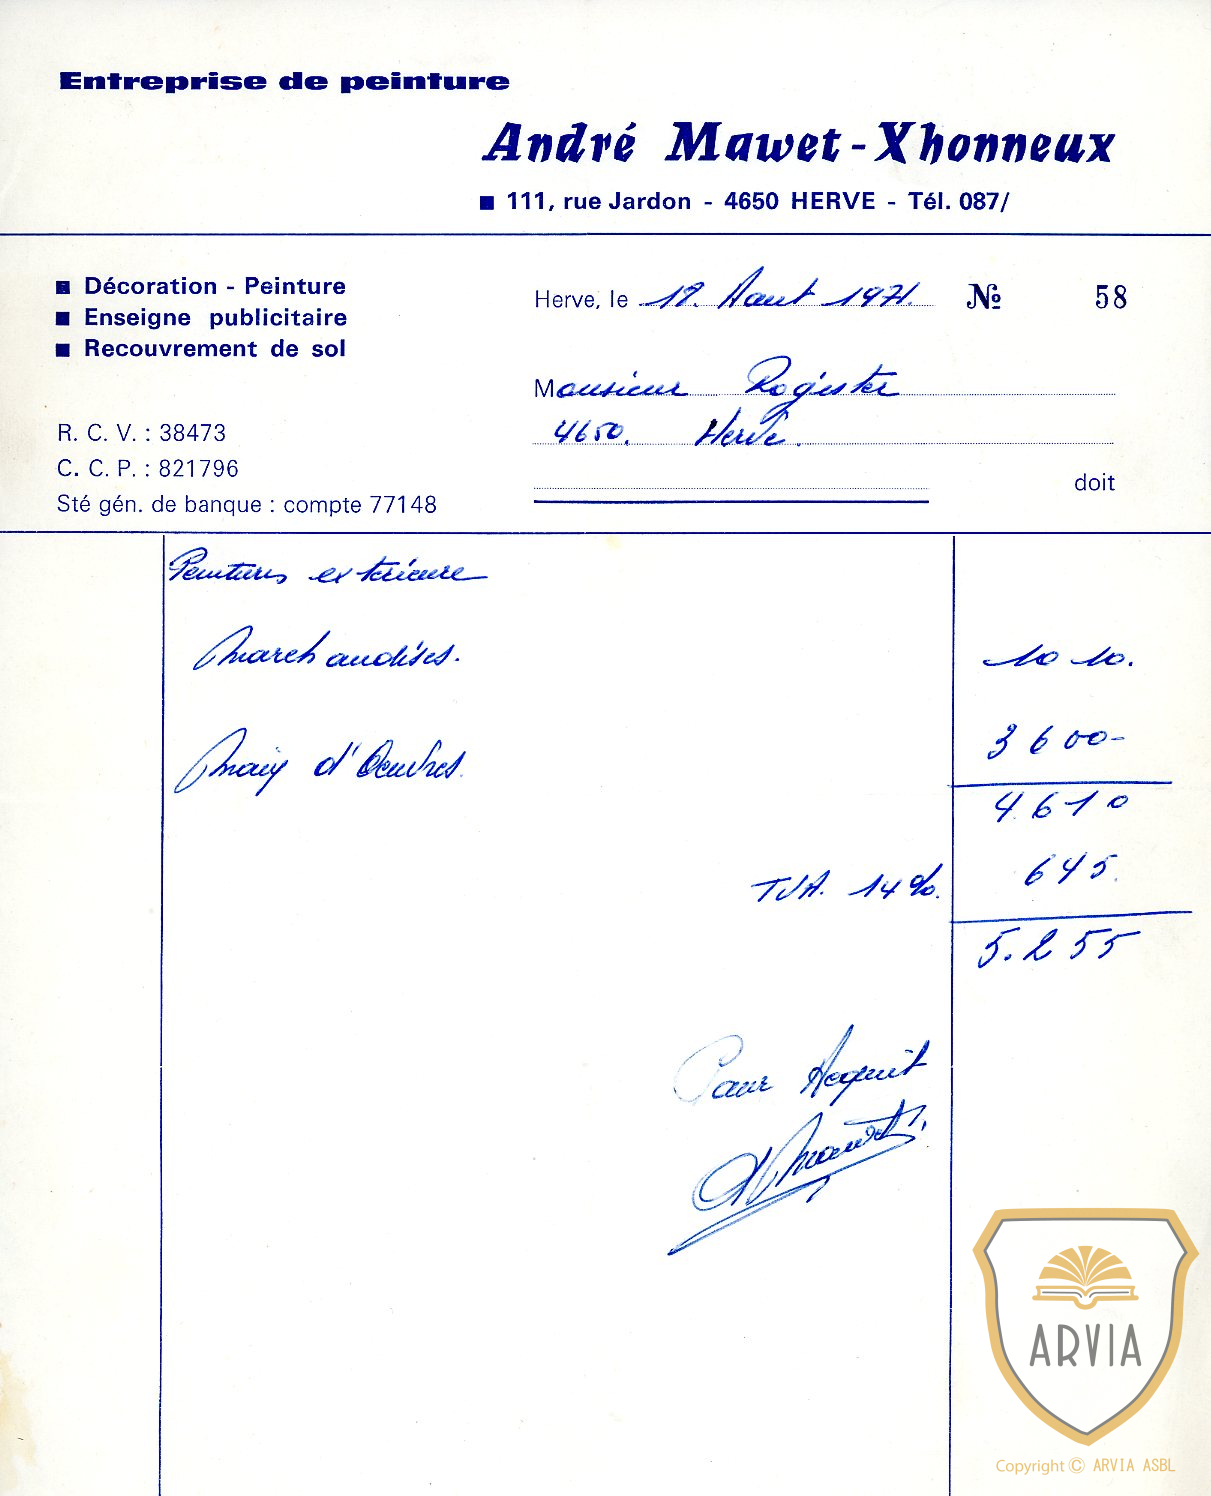 Entreprise de peinture
André Mawet-Xhonneux
■ 111, rue Jardon - 4650 HERVE - Tél. 087/
■ Décoration - Peinture
■ Enseigne publicitaire
■ Recouvrement de sol
Herve, le 18. Aout 1971. № 58
Monsieur Rogister
4650. Herve.
R. C. V. : 38473
C. C. P. : 821796
doit
Sté gén. de banque : compte 77148
Peintures exterieure
Marchandises. 1010.
Main d'Oeuvres. 3600-
4610
TVA. 14%. 645.
5.255
Pour Acquit
ARVIA
Copyright © ARVIA ASBL